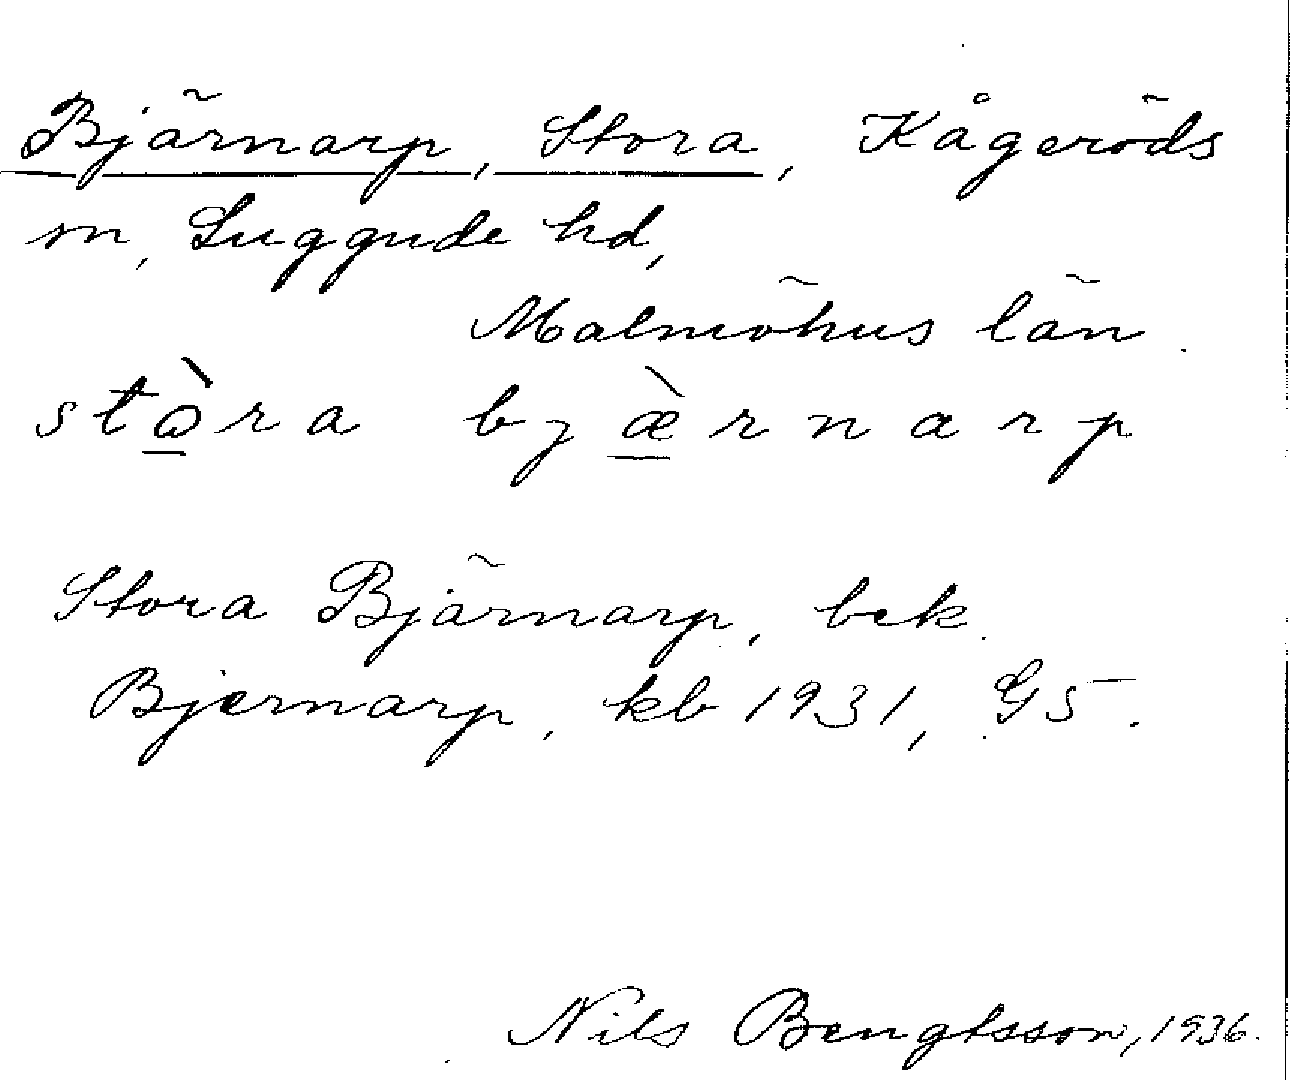 Bjärnarp, Stora, Kågeröds
sn, Luggude hd,
Malmöhus län.
stɷ̲̀ra bjæ̲̀rnarp
Stora Bjärnarp, bek.
Bjernarp, kb 1931, G5.
Nils Bengtsson, 1936.